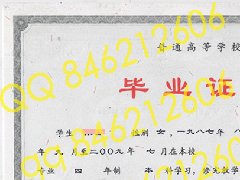 普通高等学校
毕业证
学生 性别 女，一九八七年 八
年 九 月至二〇〇九年 七 月在本校
专业 四 年制 本 科学习，修完教学
QQ 846212606
QQ 846212606
QQ 846212606